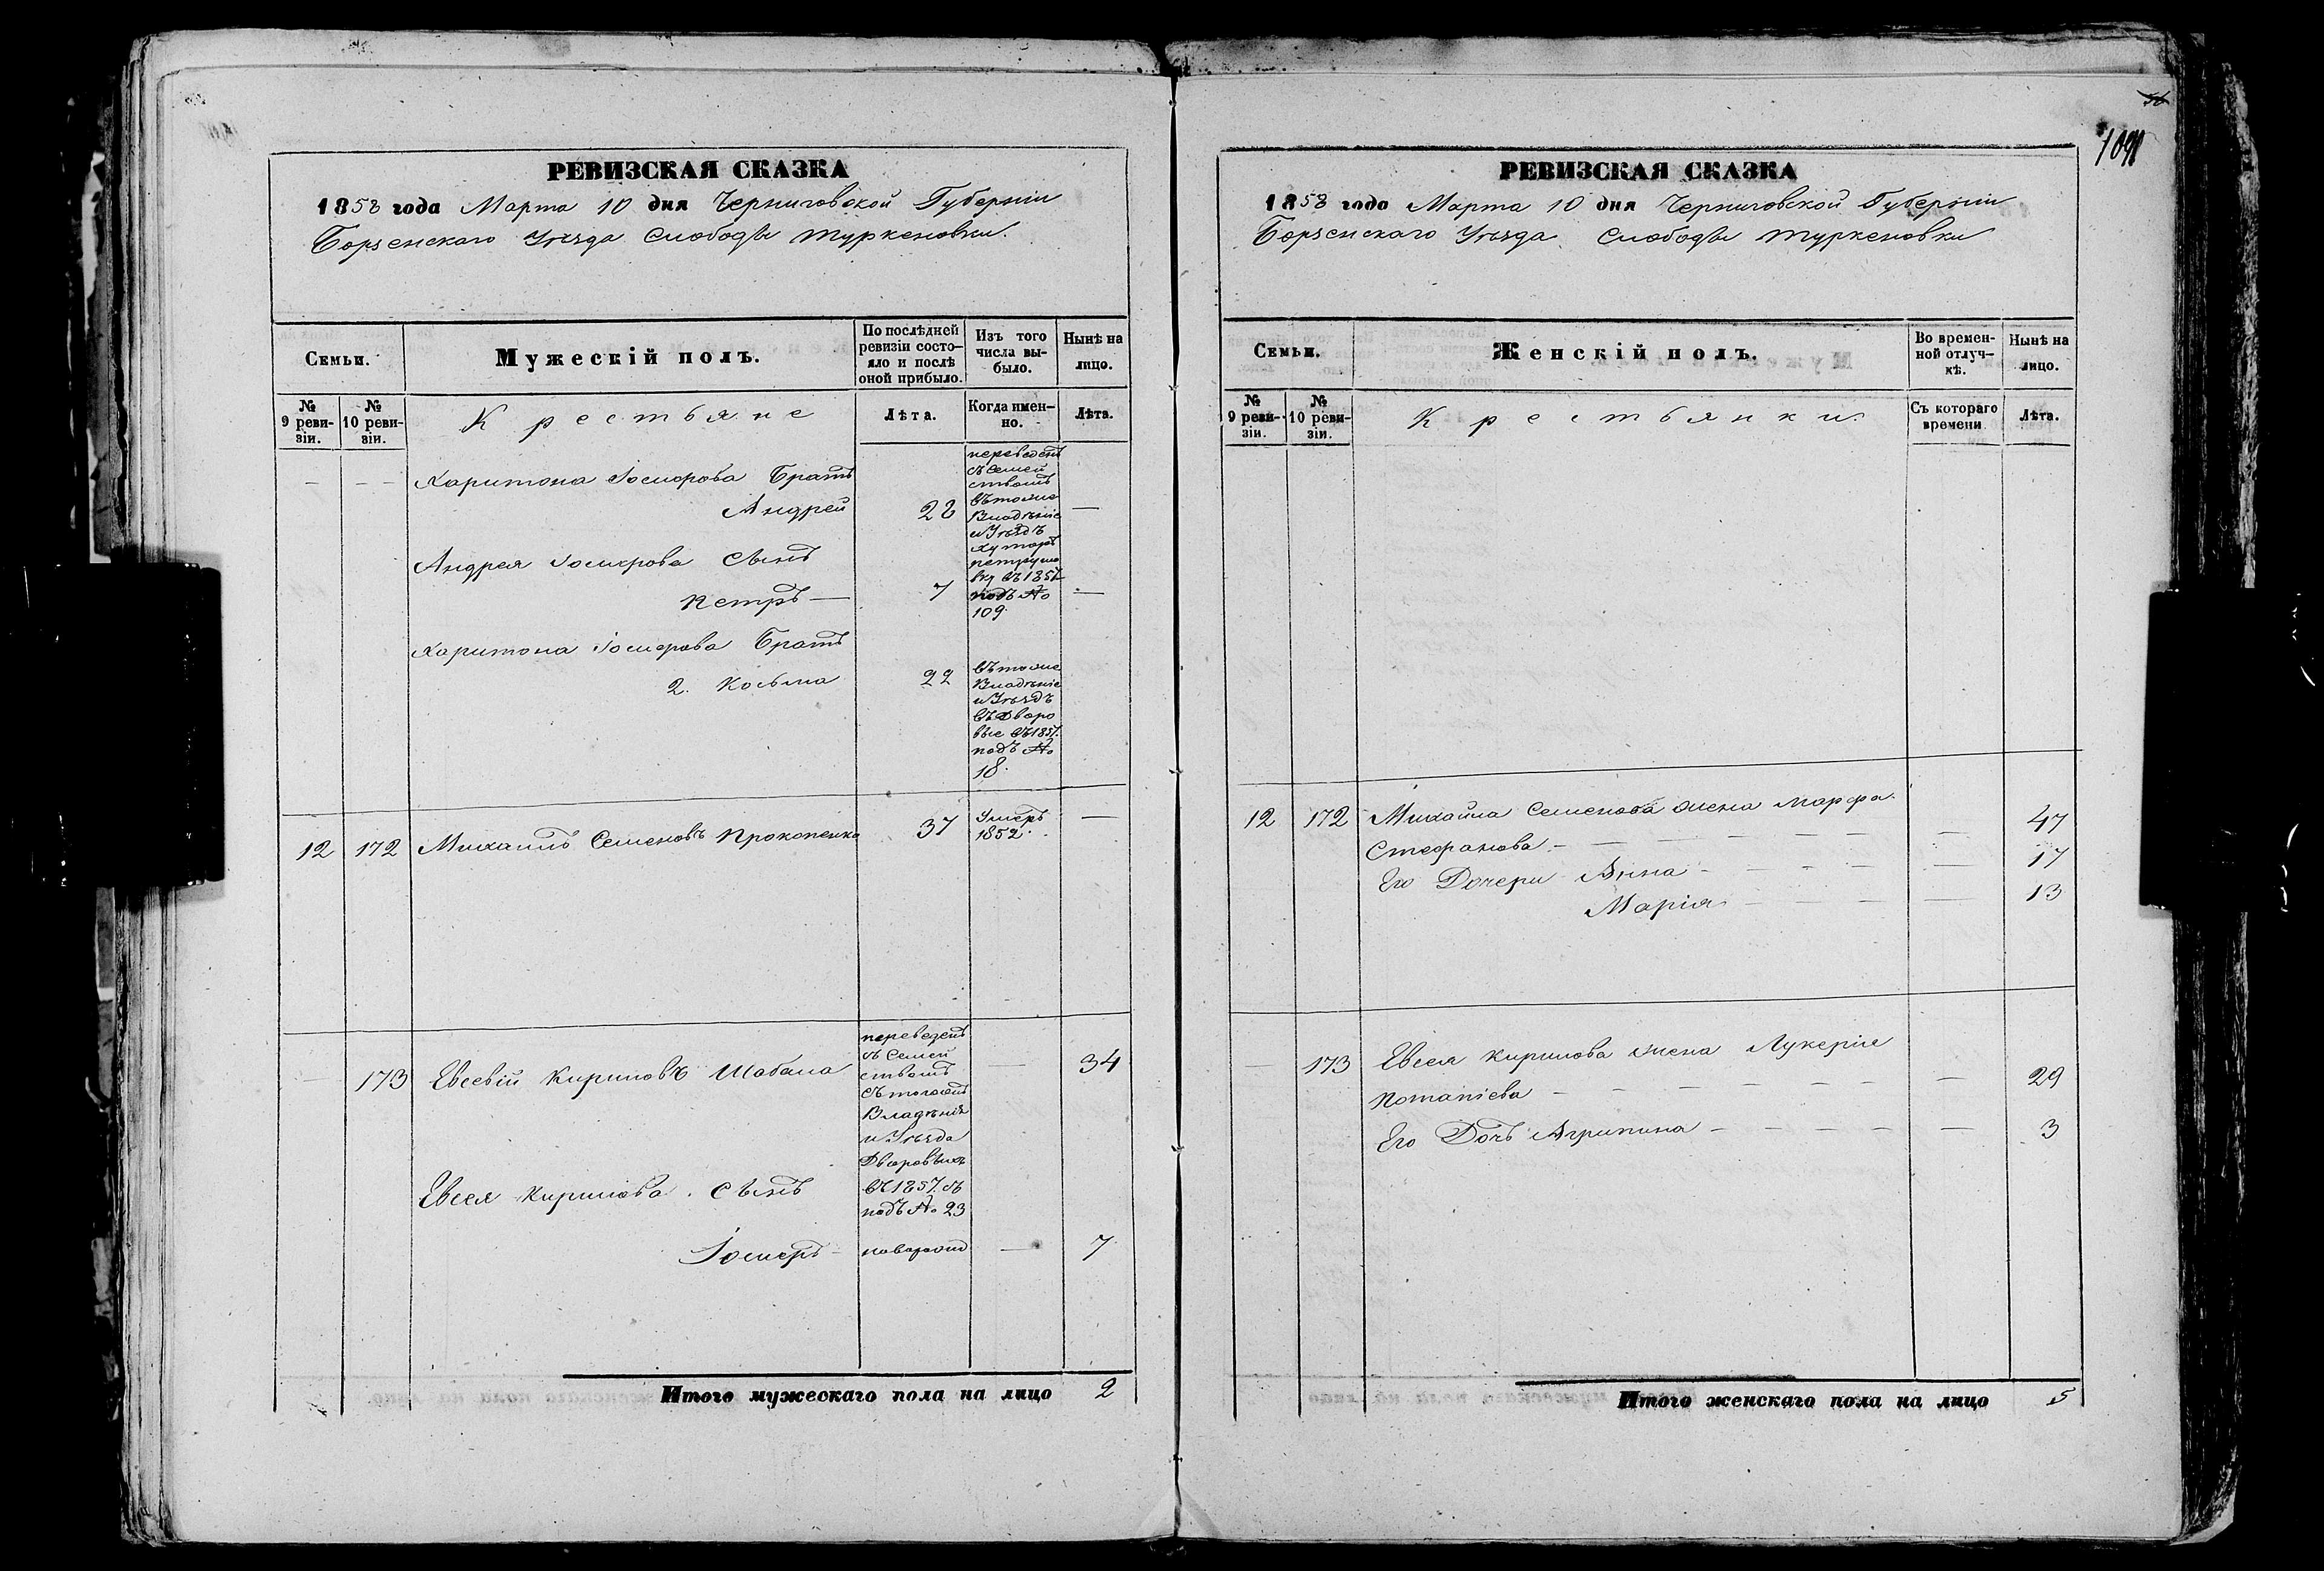 56
109
РЕВИЗСКАЯ СКАЗКА
1858 года Марта 10 дня Черниговской Губерніи
Борзенскаго Уѣзда Слободы Туркеновки.
Семьи.
Мужескій полъ.
По послѣдней ревизіи состо-
яло и послѣ
оной прибыло.
Изъ того
числа вы-
было.
Нынѣ на
лицо.
№
9 реви-
зіи.
№
10 реви-
зіи.
Крестьяне
Лѣта.
Когда имен-
но.
Лѣта.
— — — Харитона Іосифова Братъ
Андрей 28 —
переведенъ
съ семей
ствомъ
въ тоже
Владѣніе
и Уѣздъ
Хуторъ
подъ №
109.
Андрея Іосифова Сынъ
Петръ — 7 —
Харитона Іосифова Братъ
2. Косьма 22
въ тоже
Владѣніе
и Уѣздъ
въ Дворо
вые въ 1857.
подъ №
18.
12 172 Михаилъ Семеновъ Прокопенко 37 Умеръ
1852. —
— 173 Евсевій Кириловъ Шабала — 34
переведенъ
съ Семей
ствомъ
съ тогожъ
Владѣнія
и Уѣзда
Дворовыхъ
въ 1857. съ
подъ № 23
Евсея Кирилова. Сынъ
Іосифъ — — 7
Итого мужескаго пола на лицо 2
РЕВИЗСКАЯ СКАЗКА
1858 года Марта 10 дня Черниговской Губерніи
Борзенскаго Уѣзда Слободы Туркеновки
Семьи.
Женскій полъ.
Во времен-
ной отлуч-
кѣ.
Нынѣ на
лицо.
№
9 реви-
зіи.
№
10 реви-
зіи.
Крестьянки.
Съ котораго
времени
Лѣта.
12 172 Михайла Семенова жена Марфа
Стефанова — — — — — — 47
Его Дочери Анна — — — — — 17
Марія — — — — — 13
— 173 Евсея Кирилова жена Лукерія
Потапіева — — — — — — — 29
Его Дочь Агрипина — — — — — — 3
Итого женскаго пола на лицо 5